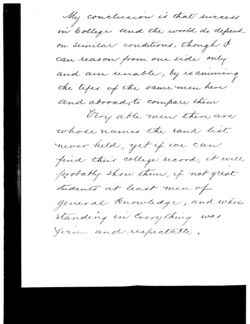 My conclusion is that success
in College and the world do depend
on similar conditions, though I
can reason from one side only
and am unable, by examining
the lifes of the same men here
and abroad, to compare them
Very able men there are
whose names the rank list
never held, yet if we can
find their college record, it will
probably show them, if not great
students at least men of
general knowledge, and whose
standing in Everything was
firm and respectable.